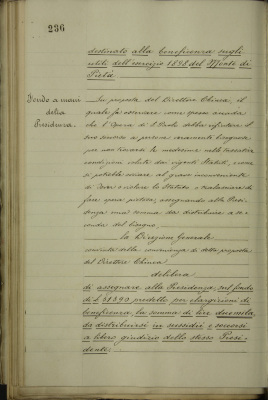 236
destinato alla beneficenza sugli
utili dell'esercizio 1898 del Monte di
Pietà.
Fondo a mani
della
Presidenza.
Su proposta del Direttore Chiesa, il
quale fa osservare come spesso avvenga
che l'Opera di S. Paolo debba rifiutare il
suo soccorso a persone veramente bisognose
per non trovarsi le medesime nelle tassative
condizioni volute dai vigenti Statuti, e come
si potrebbe ovviare al grave inconveniente
di dover o violare lo Statuto o tralasciare di
fare opera pietosa, assegnando alla Presi-
denza una somma da distribuire a se-
conda del bisogno,
La Direzione Generale
convinta della convenienza di detta proposta
del Direttore Chiesa
delibera
di assegnare alla Presidenza, sul fondo
di L. predetto per elargizioni di
beneficenza, la somma di lire duemila,
da distribuirsi in sussidii e soccorsi
a libero giudizio dello stesso Presi-
dente.